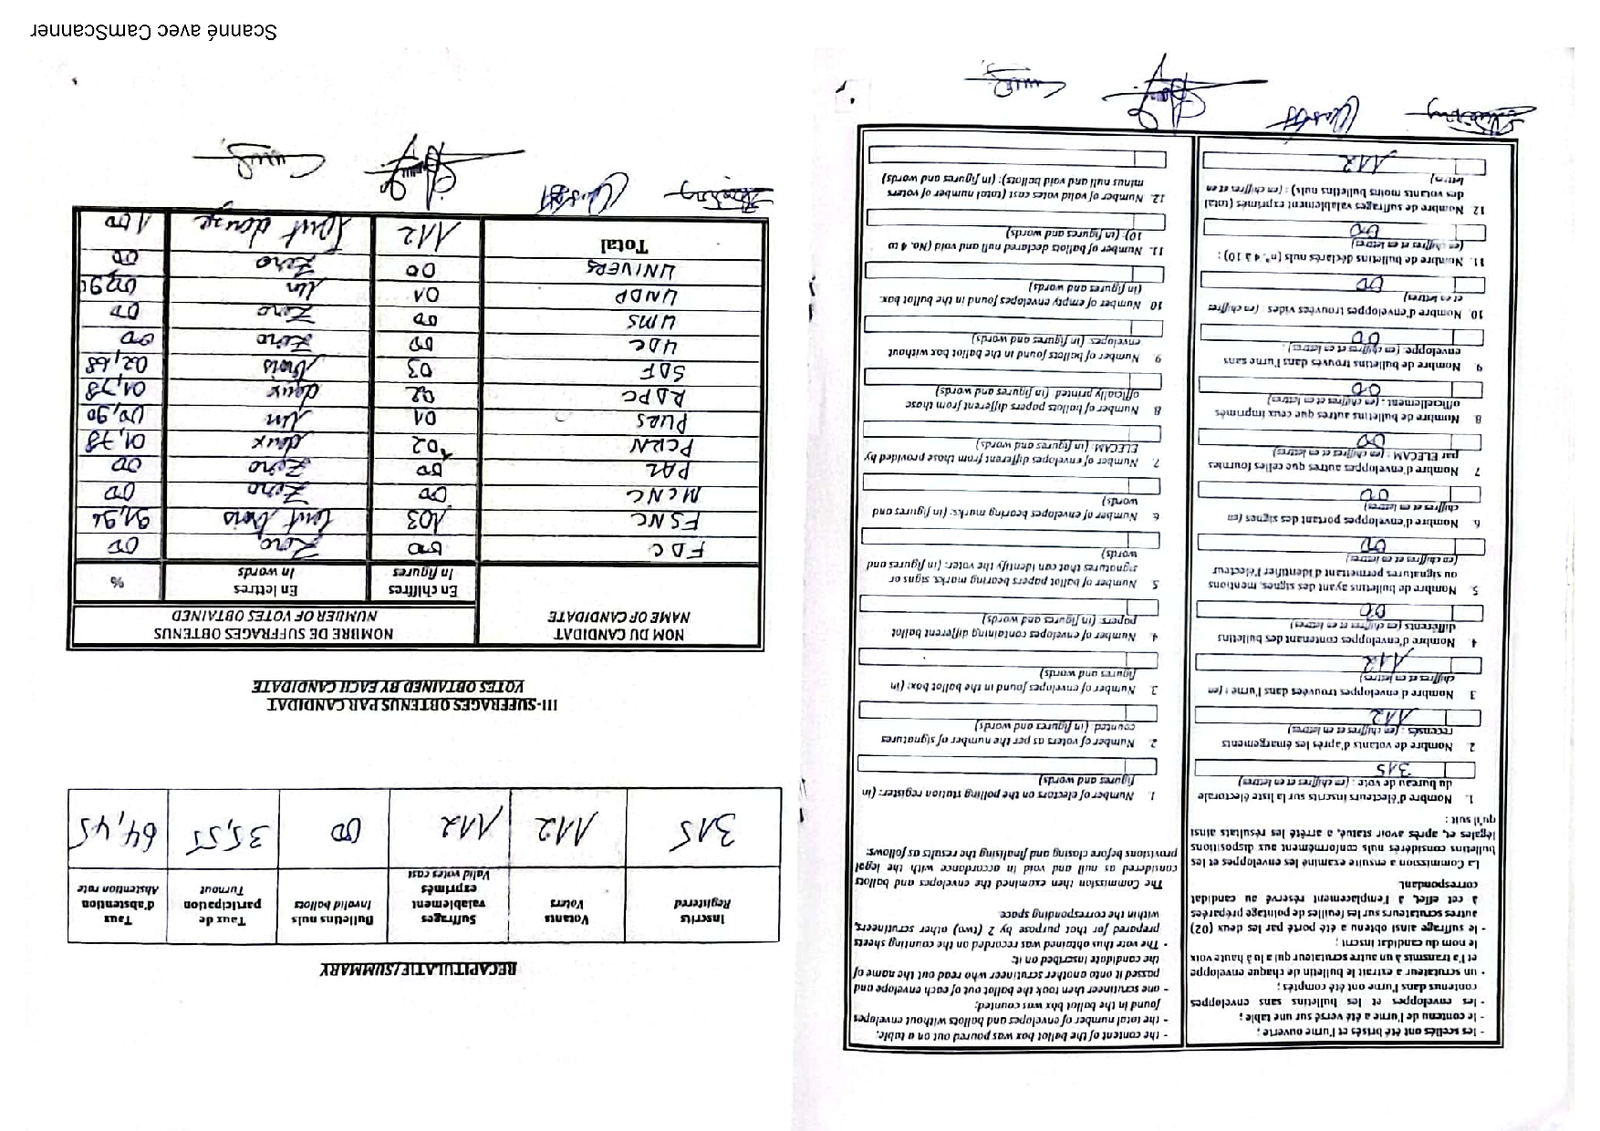 - les scellés ont été brisés et l'urne ouverte ;
- le contenu de l'urne a été versé sur une table ;
- les enveloppes et les bulletins sans enveloppes
contenus dans l'urne ont été comptés ;
- un scrutateur a extrait le bulletin de chaque enveloppe
et l'a transmis à un autre scrutateur qui a lu à haute voix
le nom du candidat inscrit ;
- le suffrage ainsi obtenu a été porté par les deux (02)
autres scrutateurs sur les feuilles de pointage préparées
à cet effet, à l'emplacement réservé au candidat
correspondant.
La Commission a ensuite examiné les enveloppes et les
bulletins considérés nuls conformément aux dispositions
légales et, après avoir statué, a arrêté les résultats ainsi
qu'il suit :
1. Nombre d'électeurs inscrits sur la liste électorale
du bureau de vote : (en chiffres et en lettres)
315
2. Nombre de votants d'après les émargements
recensés : (en chiffres et en lettres)
112
3 Nombre d'enveloppes trouvées dans l'urne : (en
chiffres et en lettres)
112
4. Nombre d'enveloppes contenant des bulletins
différents (en chiffres et en lettres)
00
5. Nombre de bulletins ayant des signes, mentions
ou signatures permettant d'identifier l'électeur
(en chiffres et en lettres)
00
6. Nombre d'enveloppes portant des signes (en
chiffres et en lettres)
00
7 Nombre d'enveloppes autres que celles fournies
par ELECAM : (en chiffres et en lettres)
00
8. Nombre de bulletins autres que ceux imprimés
officiellement : (en chiffres et en lettres)
00
9 Nombre de bulletins trouvés dans l'urne sans
enveloppe (en chiffres et en lettres) :
00
10 Nombre d'enveloppes trouvées vides (en chiffres
et en lettres)
00
11. Nombre de bulletins déclarés nuls (n°. 4 à 10) :
(en chiffres et en lettres)
00
12 Nombre de suffrages valablement exprimés (total
des votants moins bulletins nuls) : (en chiffres et en
lettres)
112
- the content of the ballot box was poured out on a table.
- the total number of envelopes and ballots without envelopes
found in the ballot box was counted;
- one scrutineer then took the ballot out of each envelope and
passed it onto another scrutineer who read out the name of
the candidate inscribed on it;
- The vote thus obtained was recorded on the counting sheets
prepared for that purpose by 2 (two) other scrutineers,
within the corresponding space.
The Commission then examined the envelopes and ballots
considered as null and void in accordance with the legal
provisions before closing and finalising the results as follows:
1. Number of electors on the polling station register: (in
figures and words)
2. Number of voters as per the number of signatures
counted (in figures and words)
3. Number of envelopes found in the ballot box: (in
figures and words)
4. Number of envelopes containing different ballot
papers: (in figures and words)
5 Number of ballot papers bearing marks, signs or
signatures that can identify the voter: (in figures and
words)
6. Number of envelopes bearing marks: (in figures and
words)
7. Number of envelopes different from those provided by
ELECAM (in figures and words)
8 Number of ballots papers different from those
officially printed (in figures and words)
9. Number of ballots found in the ballot box without
envelopes. (in figures and words)
10 Number of empty envelopes found in the ballot box:
(in figures and words)
11. Number of ballots declared null and void (No. 4 to
10): (in figures and words)
12. Number of valid votes cast (total number of voters
minus null and void ballots): (in figures and words)
RECAPITULATIF/SUMMARY
Inscrits Registered
Votants Voters
Suffrages valablement exprimés Valid votes cast
Bulletins nuls Invalid ballots
Taux de participation Turnout
Taux d'abstention Abstention rate
315 112 112 00 35,55 64,45
III-SUFFRAGES OBTENUS PAR CANDIDAT
VOTES OBTAINED BY EACH CANDIDATE
NOM DU CANDIDAT
NAME OF CANDIDATE
NOMBRE DE SUFFRAGES OBTENUS
NUMBER OF VOTES OBTAINED
En chiffres In figures
En lettres In words
%
FDC 00 Zero 00
FSNC 103 Cent trois 91,96
McNC 00 Zero 00
PAL 00 Zero 00
PCRN 02 deux 01,78
PURS 01 un 00,90
RDPC 02 deux 01,78
SDF 03 trois 02,68
UDC 00 Zero 00
UMS 00 Zero 00
UNDP 01 Un
UNIVERS 00 Zero 00
Total 112 Cent douze 100
Scanné avec CamScanner